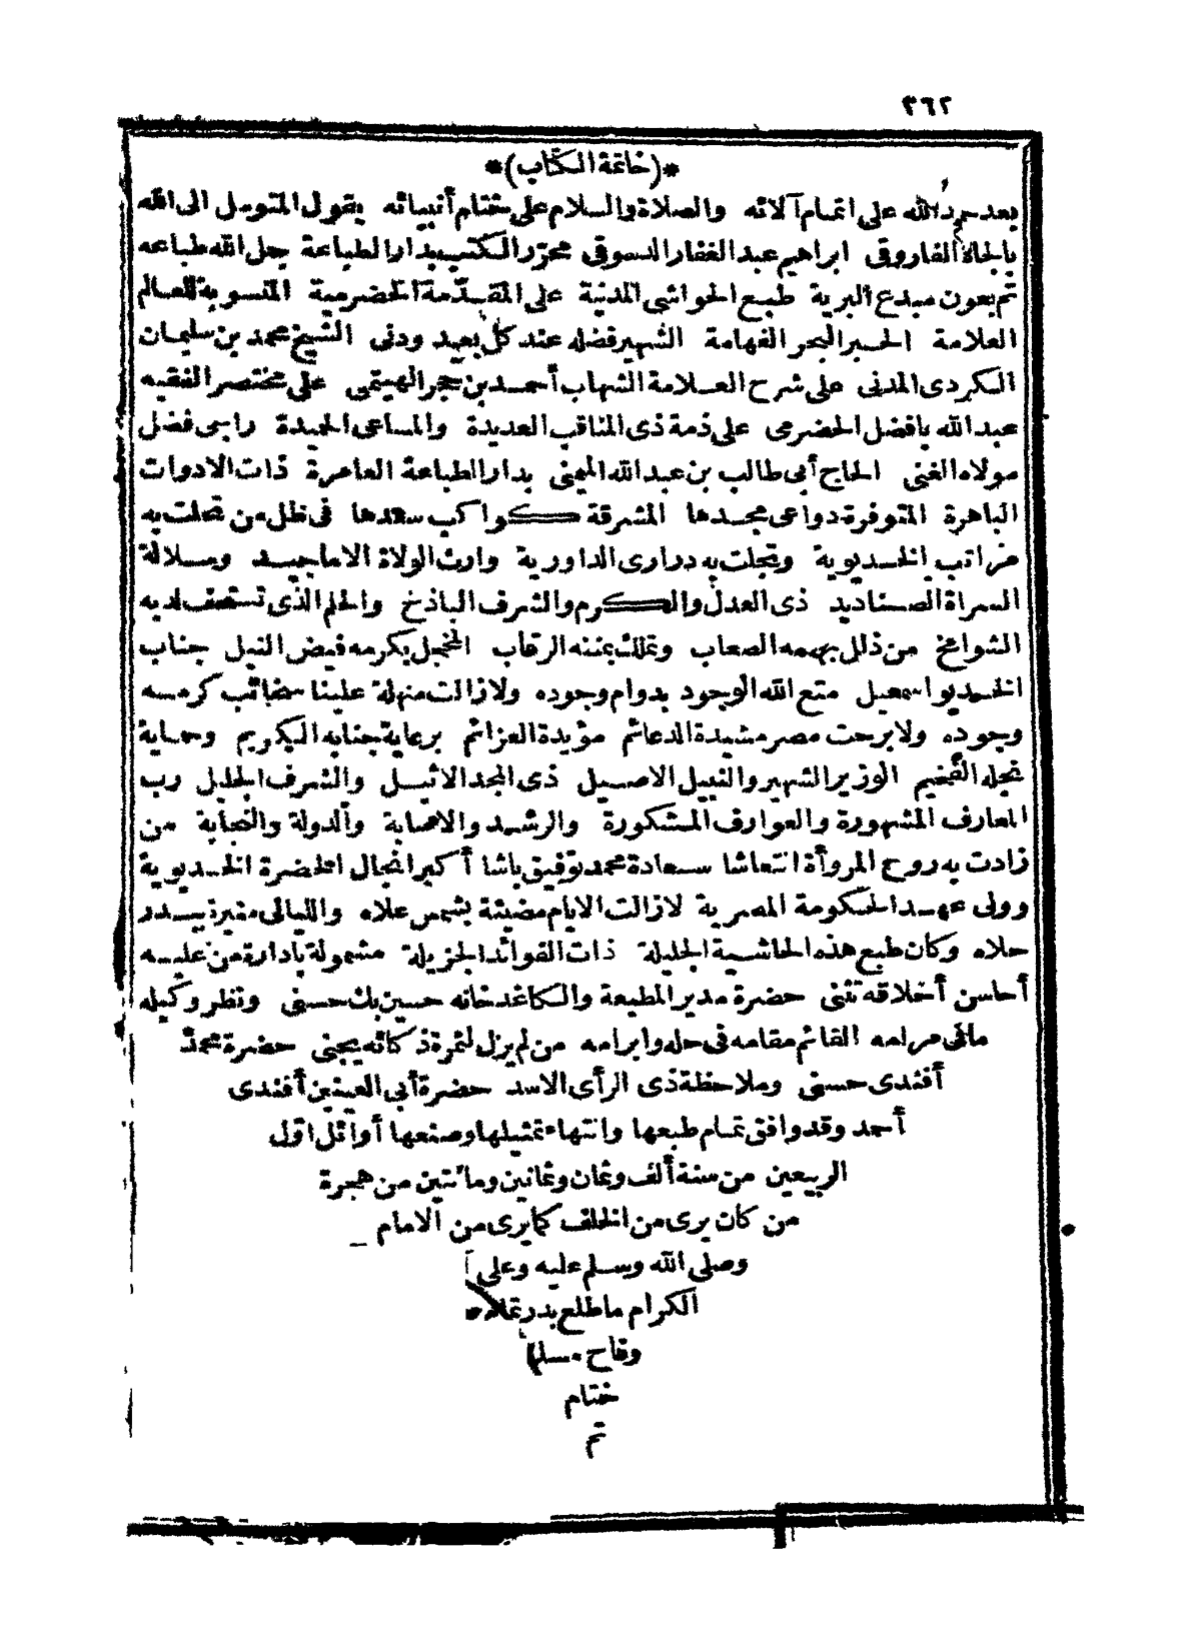 ٣٦٢
*(خاتمة الكتاب)*
بعد حمد الله على اتمام آلائه والصلاة والسلام على ختام أنبيائه يقول المتوسل الى الله
بالجاه الفاروقى ابراهيم عبد الغفار الدسوقى محرّر الكتب بدار الطباعة جمل الله طباعه
تم بعون مبدع البرية طبع الحواشى المدنية على المقدّمة الحضرمية المنسوبة للعالم
العلامة الحبر البحر الفهامة الشهير فضله عند كل بعيد ودنى الشيخ محمد بن سليمان
الكردى المدنى على شرح العلامة الشهاب أحمد بن حجر الهيتمى على مختصر الفقيه
عبد الله بافضل الحضرمى على ذمة ذى المناقب العديدة والمساعى الحميدة راجى فضل
مولاه الغنى الحاج أبى طالب بن عبد الله الميمنى بدار الطباعة العامرة ذات الادوات
الباهرة المتوفرة دواعى مجدها المشرقة كواكب سعدها فى ظل من تحلت به
مراتب الخديوية وتجلت به درارى الداورية وارث الولاة الاماجيد وسلالة
السراة الصناديد ذى العدل والكرم والشرف الباذخ والحلم الذى تستخف لديه
الشوامخ من ذلل بهممه الصعاب وتملك بمننه الرقاب المخجل بكرمه فيض النيل جناب
الخديو اسمعيل متع الله الوجود بدوام وجوده ولا زالت منهلة علينا سحائب كرمه
وجوده ولا برحت مصر مشيدة الدعائم مؤيدة العزائم برعاية جنابه الكريم وحماية
نجله الفخيم الوزير الشهير والنبيل الاصيل ذى المجد الاثيل والشرف الجليل رب
المعارف المشهورة والعوارف المشكورة والرشد والاصابة والدولة والنجابة من
زادت به روح المروأة انتعاشا سعادة محمد توفيق باشا أكبر انجال الحضرة الخديوية
وولى عهد الحكومة المصرية لازالت الايام مضيئة بشمس علاه والليالى منيرة ببدر
حلاه وكان طبع هذه الحاشية الجليلة ذات الفوائد الجزيلة مشمولة بادارة من عليه
أحاسن أخلاقه تثنى حضرة مدير المطبعة والكاغدخانه حسين بك حسنى ونظر وكيله
مافى مرامه القائم مقامه فى حله وابرامه من لم يزل لثمرة ذكائه يجنى حضرة محمد
أفندى حسنى وملاحظة ذى الرأى الاسد حضرة أبى العينين أفندى
أحمد وقد وافق تمام طبعها وانتهاء تمثيلها وصنعها أوائل اوّل
الربيعين من سنة ألف وثمان وثمانين ومائتين من هجرة
من كان يرى من الخلف كما يرى من الامام
وصلى الله وسلم عليه وعلى
الكرام ما طلع بدر تمام
وفاح مسك
ختام
تم